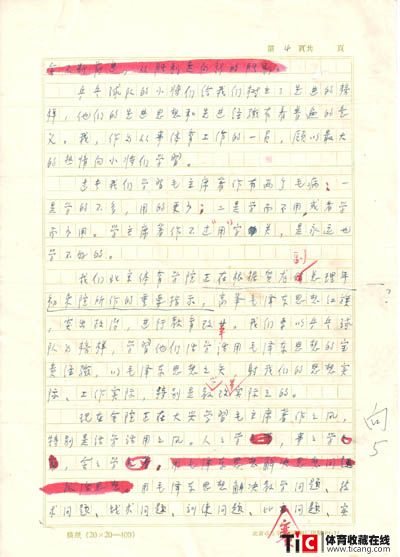 第 4 页共 页
会不断前进，从胜利走向新的胜利。
乒乓球队的小将们给我们树立了光辉的榜
样，他们的先进思想和先进经验有着普遍的意
义。我，作为从事体育工作的一员，愿以最大
的热情向小将们学习。
过去我们学习毛主席著作有两个毛病：一
是学的不多，用的更少；二是学而不用或者学
多用少。学主席著作不过“用”字关，是永远也
学不好的。
我们北京体育学院正在根据贺龙副总理年
初来院所作的重要指示，高举毛泽东思想红旗
，突出政治，进行教育改革。我们要以乒乓球
队为榜样，学习他们活学活用毛泽东思想的宝
贵经验，以毛泽东思想之矢，射我们的思想实
际、工作实际，特别是教改实际之的。
现在全院正在大兴学习毛主席著作之风，
特别是活学活用之风。人人学，事事学
，全年学，用毛泽东思想解决思想问题
，用毛泽东思想解决教学问题、技
术问题、战术问题、训练问题、比赛问题、家
稿纸（20×20＝400）
向5
TiC 体育收藏在线
www.TiCla.com